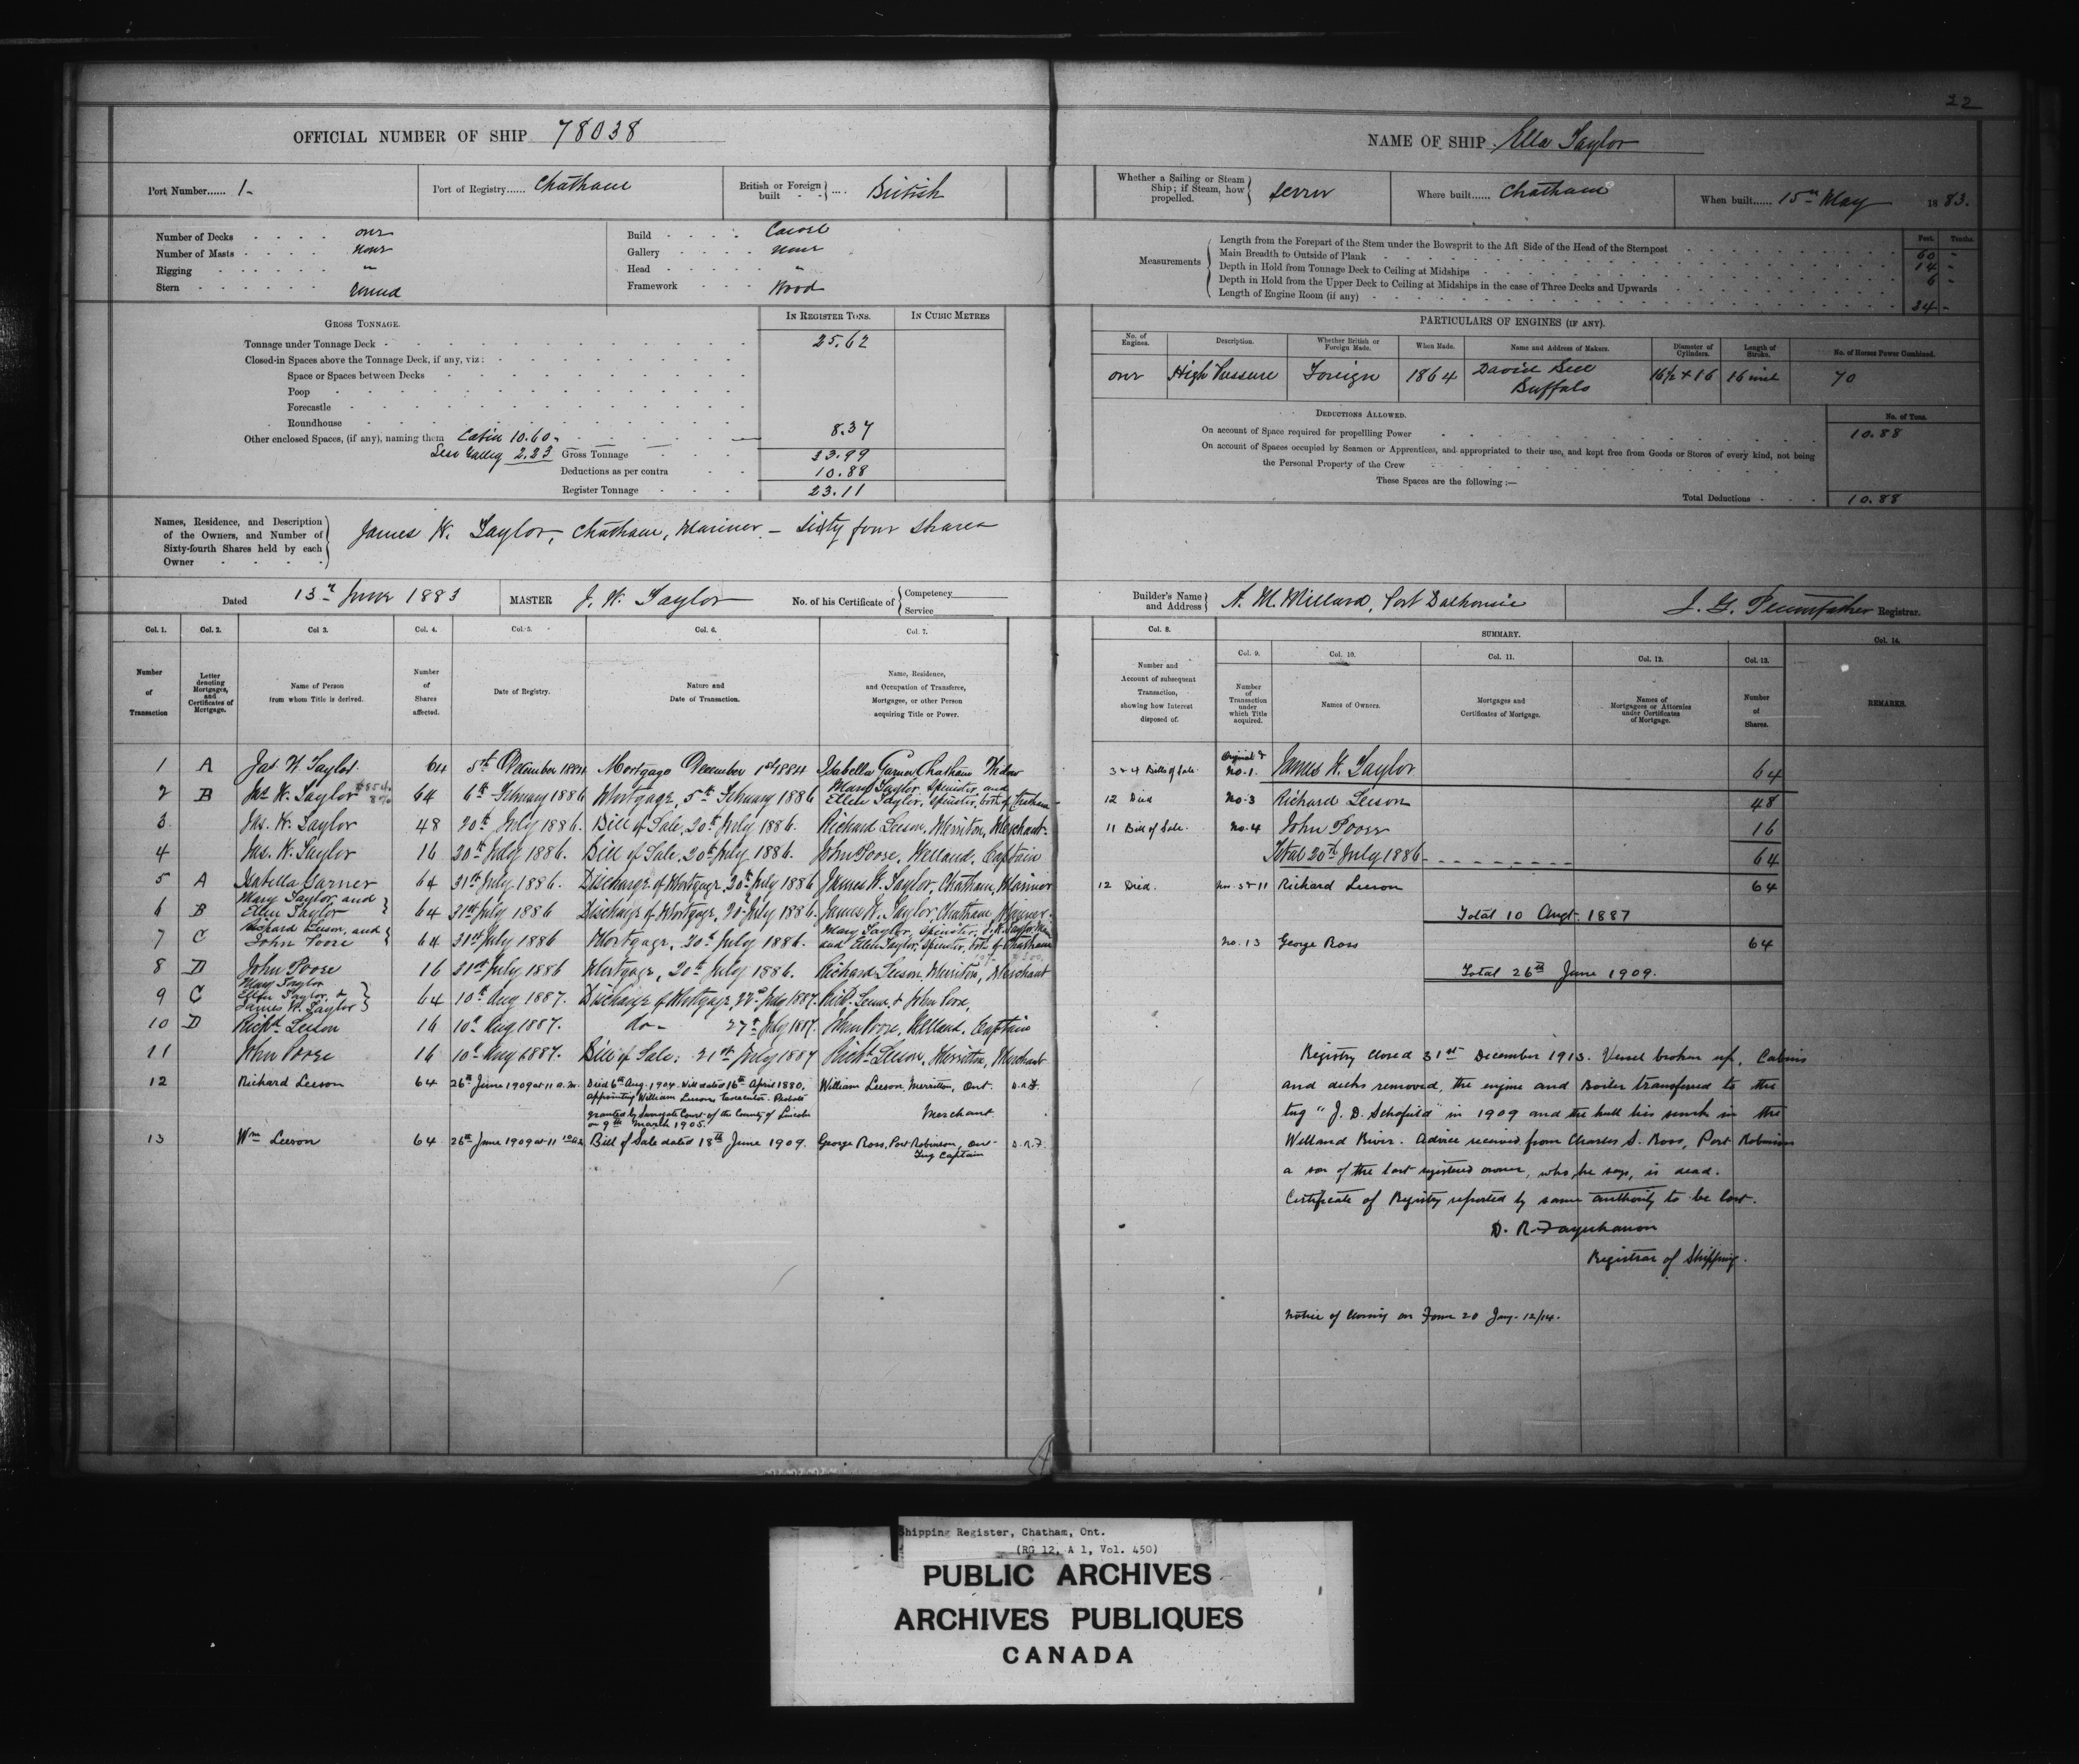 22
OFFICIAL NUMBER OF SHIP 78038
NAME OF SHIP Ella Taylor
Port Number...... 1-
Port of Registry...... Chatham
British or Foreign built .... British
Whether a Sailing or Steam Ship; if Steam, how propelled. Screw
Where built...... Chatham
When built...... 15th May 1883.
Number of Decks one
Number of Masts none
Rigging "
Stern round
Build Carvel
Gallery none
Head "
Framework Wood
Measurements
Length from the Forepart of the Stem under the Bowsprit to the Aft Side of the Head of the Sternpost
Main Breadth to Outside of Plank
Depth in Hold from Tonnage Deck to Ceiling at Midships
Depth in Hold from the Upper Deck to Ceiling at Midships in the case of Three Decks and Upwards
Length of Engine Room (if any)
Feet. Tenths.
60 -
14 -
6 -
24 -
GROSS TONNAGE.
IN REGISTER TONS. IN CUBIC METRES
Tonnage under Tonnage Deck 25.62
Closed-in Spaces above the Tonnage Deck, if any, viz:
Space or Spaces between Decks
Poop
Forecastle
Roundhouse
Other enclosed Spaces, (if any), naming them Cabin 10.60 8.37
Less Galley 2.23 Gross Tonnage 33.99
Deductions as per contra 10.88
Register Tonnage 23.11
PARTICULARS OF ENGINES (IF ANY).
No. of Engines. Description. Whether British or Foreign Made. When Made. Name and Address of Makers. Diameter of Cylinders. Length of Stroke. No. of Horses Power Combined.
one High Pressure Foreign 1864 David Bell Buffalo 16½ x 16 16 inch 70
DEDUCTIONS ALLOWED.
No. of Tons.
On account of Space required for propellling Power 10.88
On account of Spaces occupied by Seamen or Apprentices, and appropriated to their use, and kept free from Goods or Stores of every kind, not being
the Personal Property of the Crew
These Spaces are the following :—
Total Deductions 10.88
Names, Residence, and Description of the Owners, and Number of Sixty-fourth Shares held by each Owner
James W. Taylor, Chatham, Mariner - Sixty four shares
Dated 13th June 1883
MASTER J. W. Taylor
No. of his Certificate of Competency Service
Builder's Name and Address A. M. Millard, Port Dalhousie
J. G. Pennefather Registrar.
Col. 1. Col. 2. Col 3. Col. 4. Col. 5. Col. 6. Col. 7. Col. 8. SUMMARY. Col. 14.
Col. 9. Col. 10. Col. 11. Col. 12. Col. 13.
Number of Transaction
Letter denoting Mortgages, and Certificates of Mortgage.
Name of Person from whom Title is derived.
Number of Shares affected.
Date of Registry.
Nature and Date of Transaction.
Name, Residence, and Occupation of Transferee, Mortgagee, or other Person acquiring Title or Power.
Number and Account of subsequent Transaction, showing how Interest disposed of.
Number of Transaction under which Title acquired.
Names of Owners.
Mortgages and Certificates of Mortgage.
Names of Mortgagees or Attornies under Certificates of Mortgage.
Number of Shares.
REMARKS.
1 A Jas. W. Taylor 64 5th December 1884 Mortgage December 1st 1884 Isabella Garner Chatham Widow
2 B Jas. W. Taylor 64 6th February 1886 Mortgage, 5th February 1886 Mary Taylor, Spinster, and Ellen Taylor, Spinster, both of Chatham
3 Jas. W. Taylor 48 20th July 1886. Bill of Sale, 20th July 1886. Richard Leeson, Merriton, Merchant
4 Jas. W. Taylor 16 20th July 1886. Bill of Sale, 20th July 1886. John Poore, Welland, Captain
5 A Isabella Garner 64 21st July 1886. Discharge of Mortgage 20th July 1886 James W. Taylor, Chatham, Mariner
6 B Mary Taylor and Ellen Taylor 64 21st July 1886 Discharge of Mortgage, 20th July 1886. James W. Taylor, Chatham Mariner
7 C Richard Leeson, and John Poore 64 21st July 1886 Mortgage, 20th July 1886. Mary Taylor, Spinster, J. W. Taylor and Ellen Taylor, Spinster, both of Chatham
8 D John Poore 16 21st July 1886 Mortgage, 20th July 1886. Richard Leeson, Merriton, Merchant
9 C Mary Taylor Ellen Taylor, & James W. Taylor 64 10th Aug 1887. Discharge of Mortgage, 22nd July 1887. Richd. Leeson & John Poore,
10 D Richd. Leeson 16 10th Aug 1887. do- 27th July 1887. John Poore, Welland, Captain
11 John Poore 16 10th Aug 1887. Bill of Sale: 21st July 1887 Richd. Leeson, Merritton, Merchant
12 Richard Leeson 64 26th June 1909 at 11 a.m. Died 6th Aug. 1904. Will dated 16th April 1880,
appointing William Leeson Executor. Probate
granted by Surrogate Court of the County of Lincoln
on 9th March 1905.
William Leeson, Merritton, Ont. Merchant. D.R.F.
13 Wm Leeson 64 26th June 1909 at 11 Bill of Sale dated 18th June 1909. George Ross, Port Robinson, Ont- Tug Captain D.R.F.
3 & 4 Bills of Sale Original & No. 1. James W. Taylor 64
12 Died No. 3 Richard Leeson 48
11 Bill of Sale. No. 4 John Poore 16
Total 20th July 1886 64
12 Died. No. 3 & 11 Richard Leeson 64
Total 10 Augt. 1887
No. 13 George Ross 64
Total 26th June 1909.
Registry closed 31st December 1913. Vessel broken up. Cabins
and decks removed, the engine and Boiler transferred to the
tug "J. D. Schofield" in 1909 and the hull lies sunk in the
Welland River. Advice received from Charles S. Ross, Port Robinson
a son of the last registered owner, who, he says, is dead.
Certificate of Registry reported by same authority to be lost.
D. R. Farquharson
Registrar of Shipping.
Notice of closing on Form 20 Jany. 12/14.
Shipping Register, Chatham, Ont.
(RG 12, A 1, Vol. 450)
PUBLIC ARCHIVES
ARCHIVES PUBLIQUES
CANADA